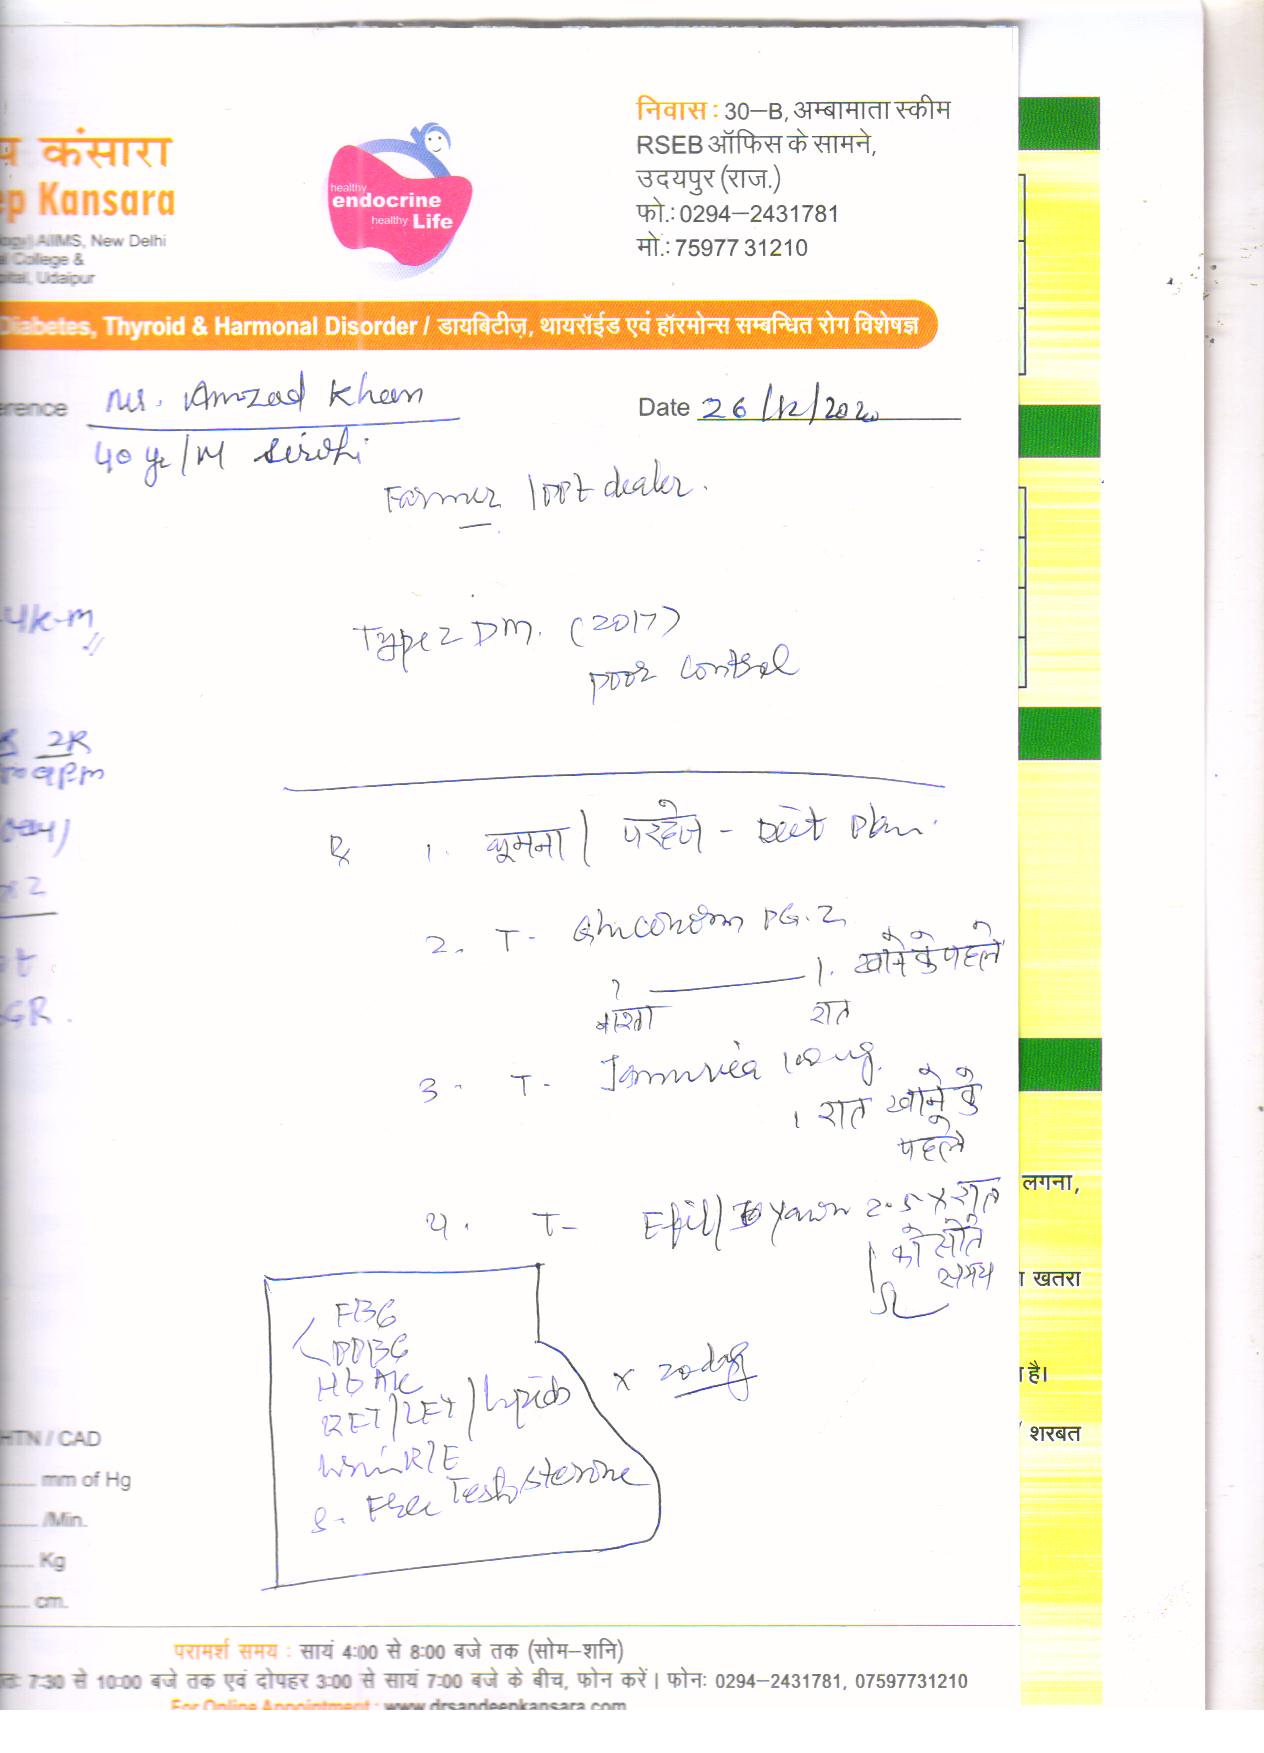 कंसारा
Kansara
AIIMS, New Delhi
College &
Udaipur
healthy
endocrine
healthy Life
निवास : 30–B, अम्बामाता स्कीम
RSEB ऑफिस के सामने,
उदयपुर (राज.)
फो.: 0294–2431781
मो.: 75977 31210
Diabetes, Thyroid & Harmonal Disorder / डायबिटीज़, थायरॉईड एवं हॉरमोन्स सम्बन्धित रोग विशेषज्ञ
Amzad Khan
Date 26/12/2020
40 yr/M Sirohi
Farmer / ppt dealer.
Type 2 DM. (2017)
poor control
2R
9pm
℞ 1. घूमना / परहेज - Diet Plan.
2. T- Gluconorm PG. 2
1 ——— 1. खाने के पहले
नाश्ता रात
3. T- Januvia 100mg.
1 रात खाने के
पहले
4. T- 2.5 x रात
को सोते
समय
FBG
PPBG
HbA1c
RFT/LFT/Lipids
x 20 days
Urine R/E
S. Free Testosterone
HTN / CAD
mm of Hg
/Min.
Kg
cm.
लगना,
खतरा
है।
शरबत
परामर्श समय : सायं 4:00 से 8:00 बजे तक (सोम–शनि)
7:30 से 10:00 बजे तक एवं दोपहर 3:00 से सायं 7:00 बजे के बीच, फोन करें। फोनः 0294–2431781, 07597731210
For Online Appointment : www.drsandeepkansara.com